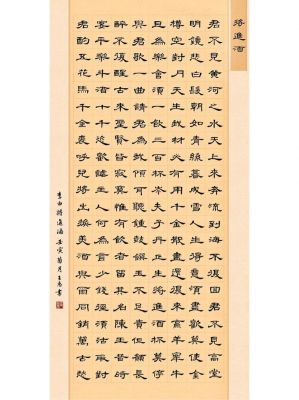 將進酒
君不見黃河之水天上來奔流到海不復回君不見高堂
明鏡悲白髮朝如青絲暮成雪人生得意須盡歡莫使金
樽空對月天生我材必有用千金散盡還復來烹羊宰牛
且為樂會須一飲三百杯岑夫子丹丘生將進酒杯莫停
與君歌一曲請君為我傾耳聽鐘鼓饌玉不足貴但願長
醉不復醒古來聖賢皆寂寞惟有飲者留其名陳王昔時
宴平樂斗酒十千恣歡謔主人何為言少錢徑須沽取對
君酌五花馬千金裘呼兒將出換美酒與爾同銷萬古愁
李白將進酒壬寅菊月書